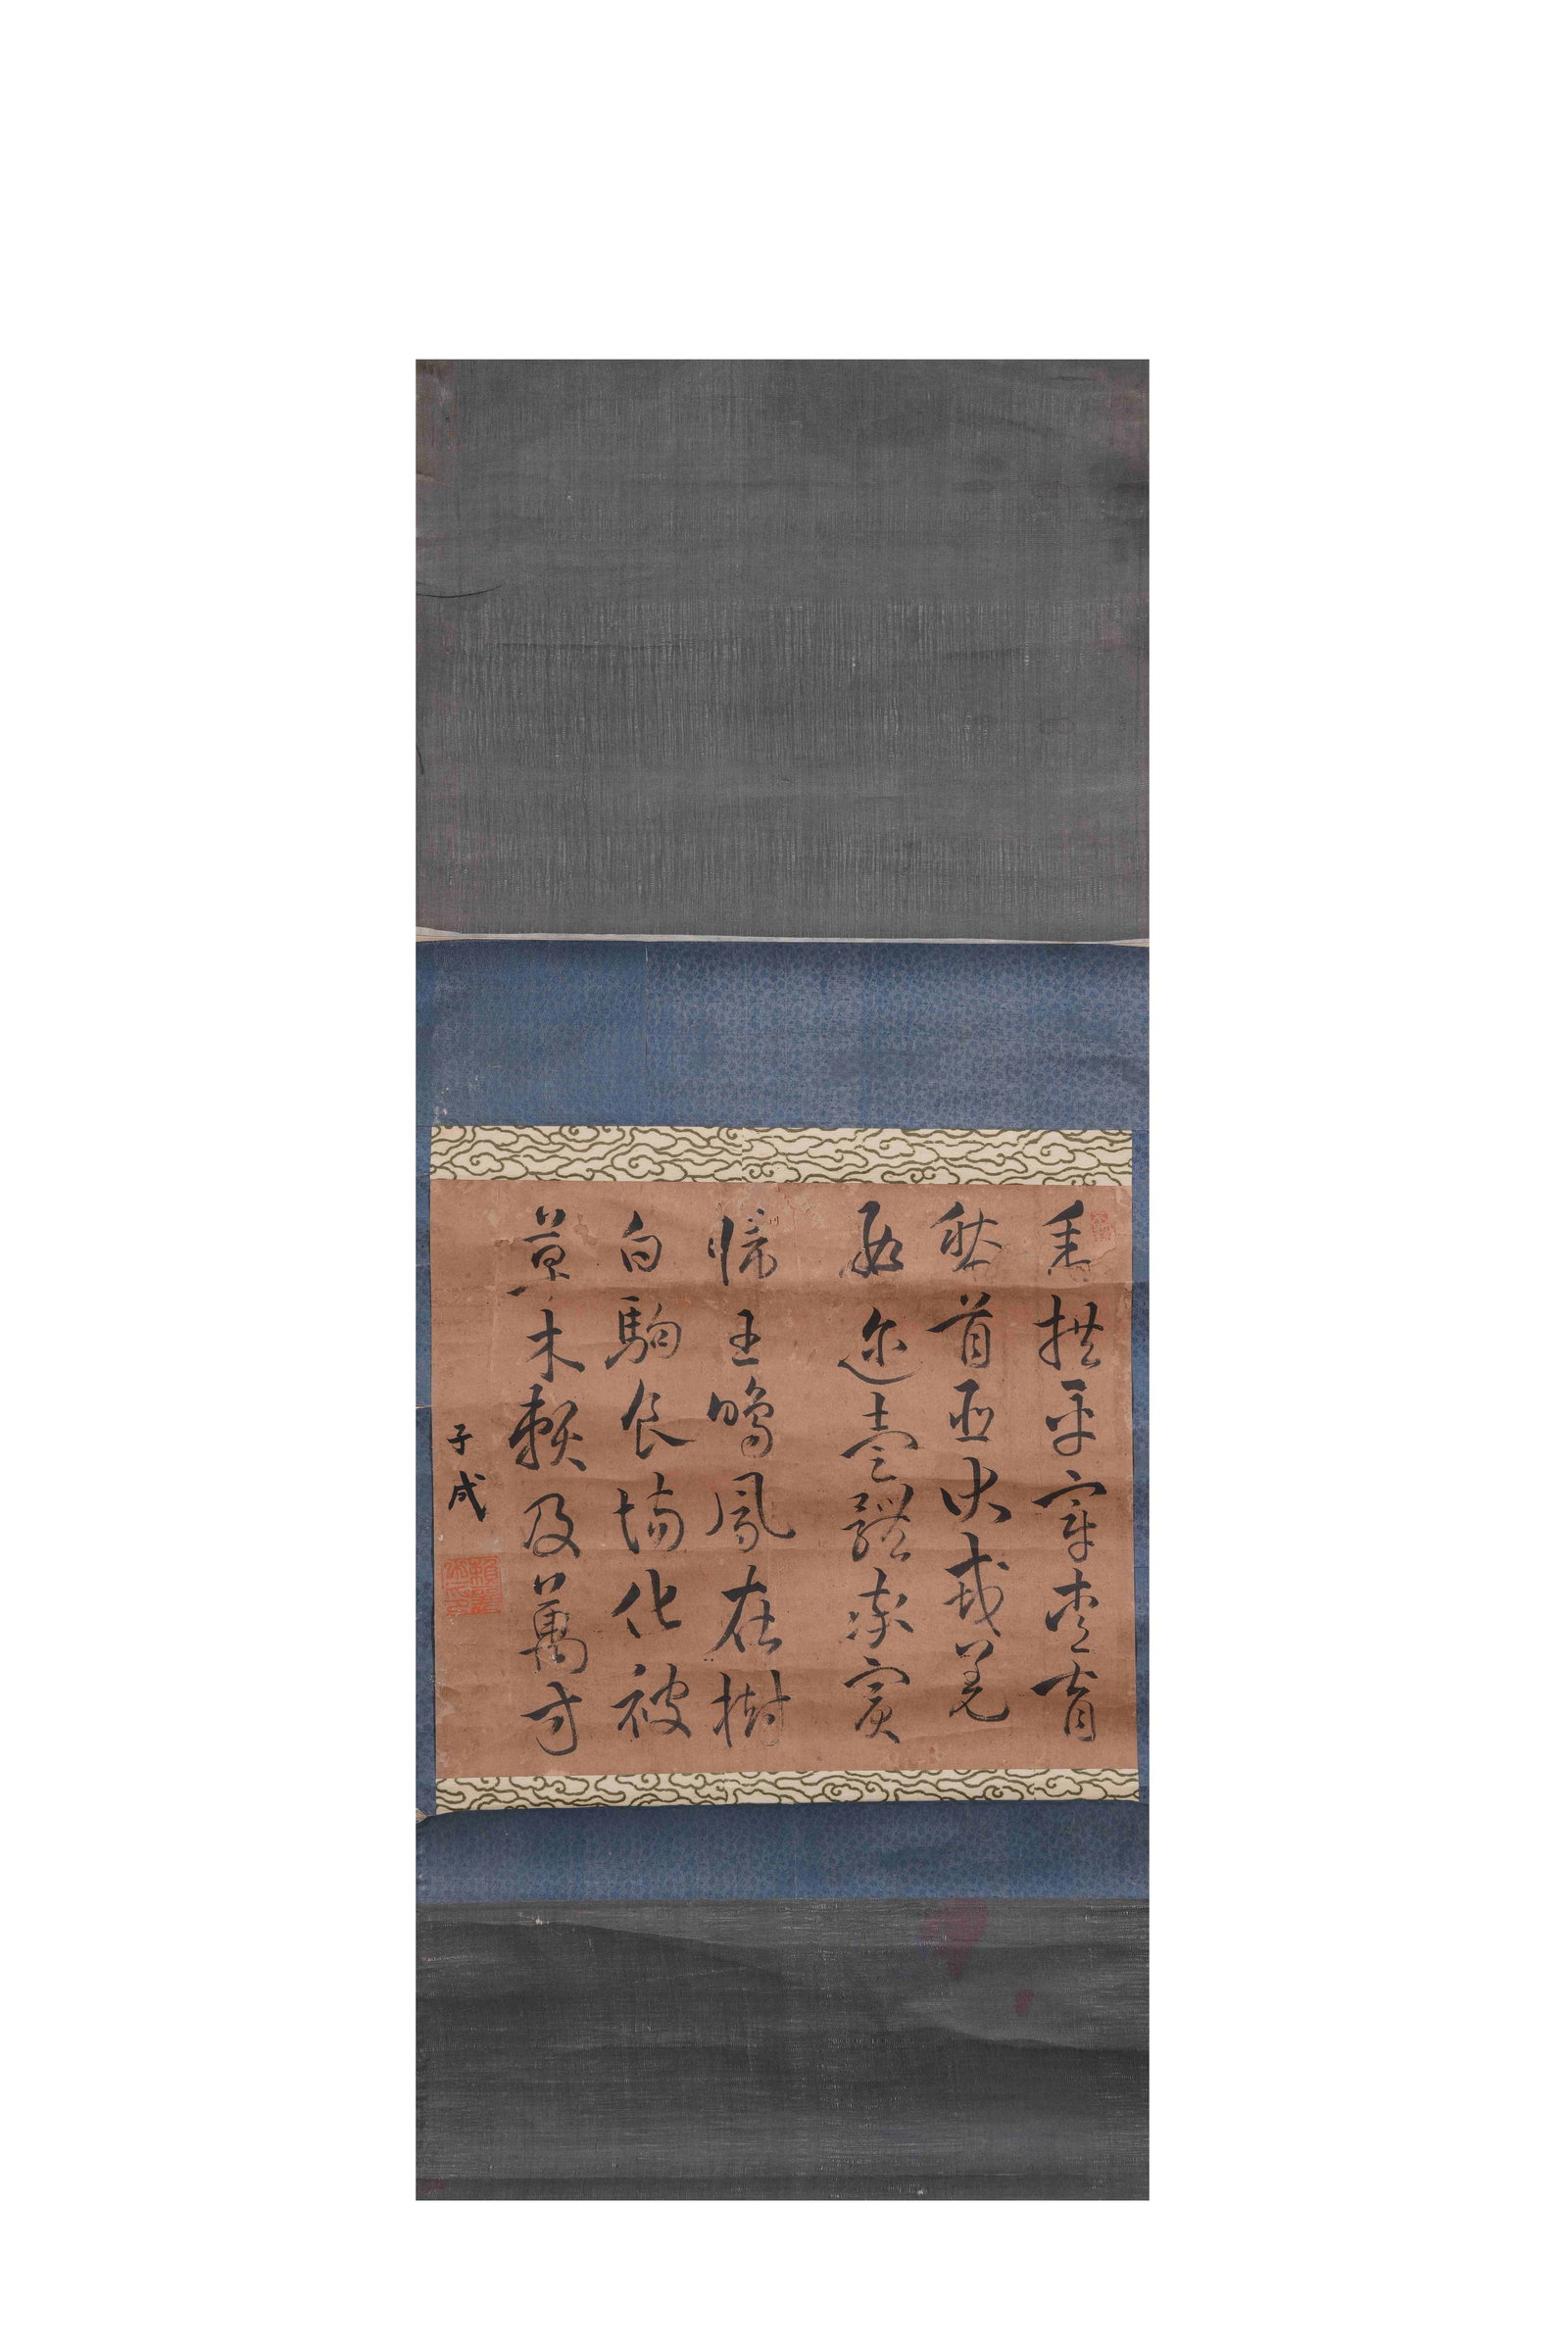 垂拱平章愛育
黎首臣伏戎羌
遐迩壹體率賓
帰王鳴鳳在樹
白駒食場化被
草木賴及萬方
子成